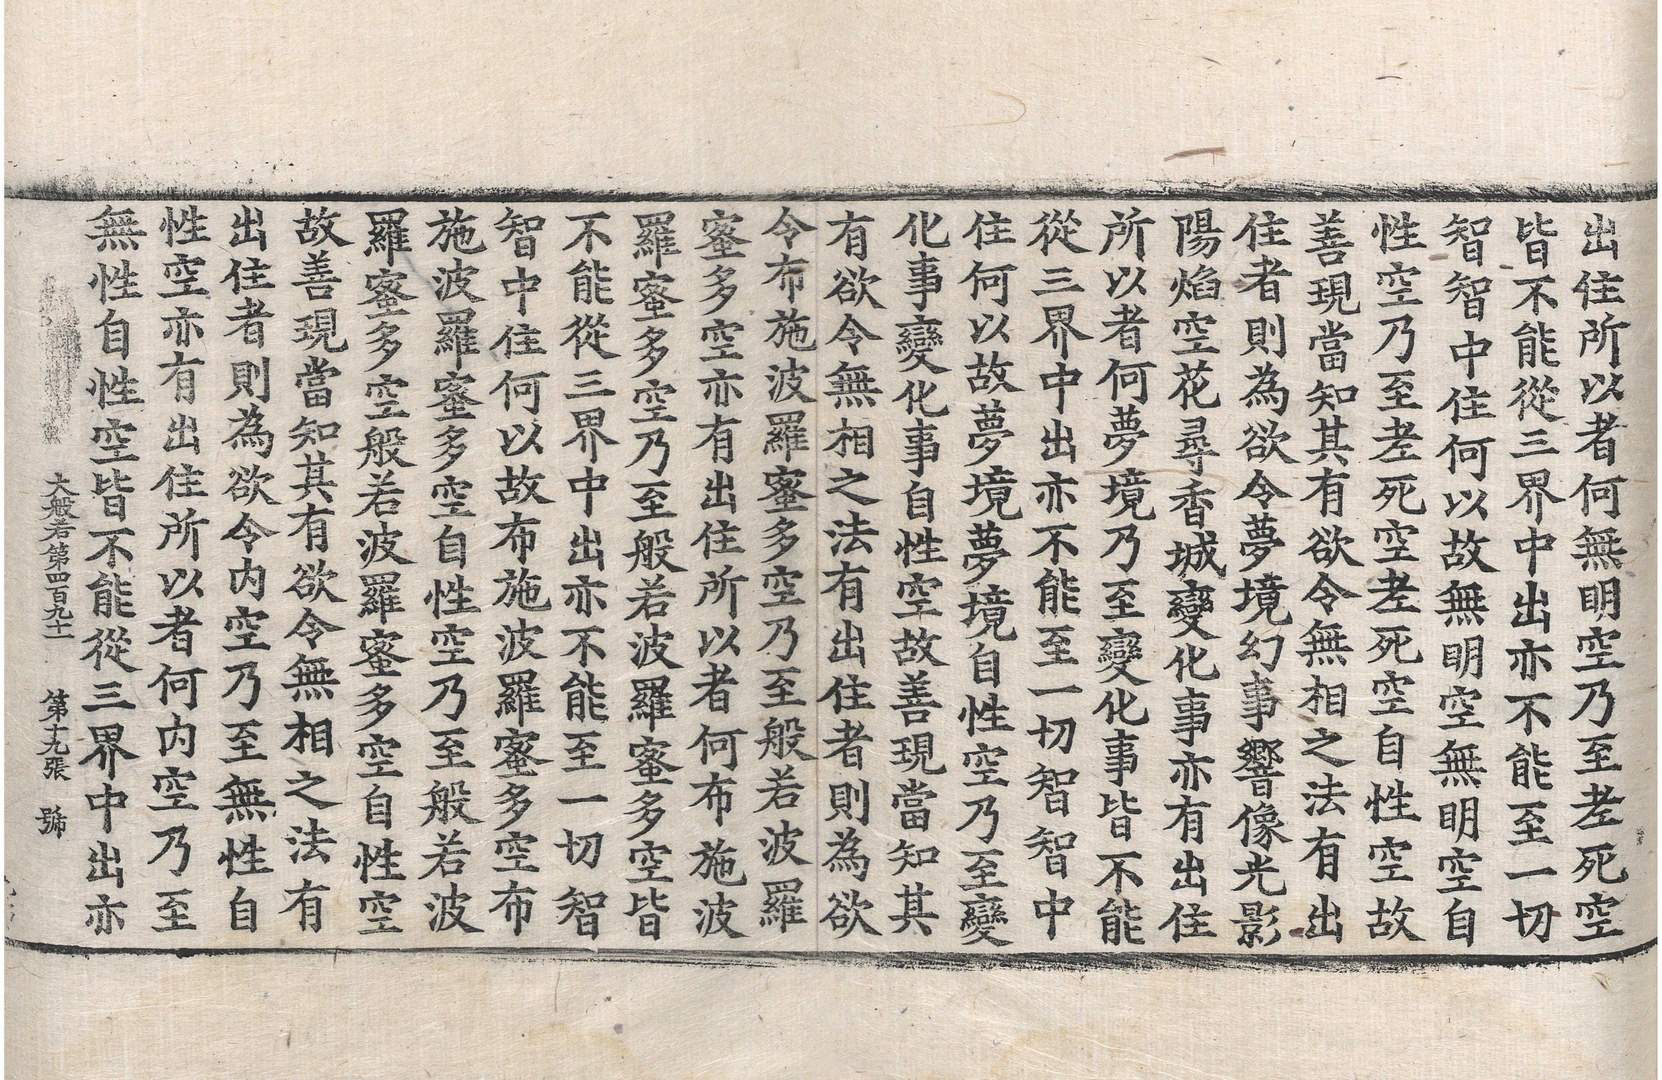 出住所以者何無明空乃至老死空
皆不能從三界中出亦不能至一切
智智中住何以故無明空無明空自
性空乃至老死空老死空自性空故
善現當知其有欲令無相之法有出
住者則為欲令夢境幻事響像光影
陽焰空花尋香城變化事亦有出住
所以者何夢境乃至變化事皆不能
從三界中出亦不能至一切智智中
住何以故夢境夢境自性空乃至變
化事變化事自性空故善現當知其
有欲令無相之法有出住者則為欲
令布施波羅蜜多空乃至般若波羅
蜜多空亦有出住所以者何布施波
羅蜜多空乃至般若波羅蜜多空皆
不能從三界中出亦不能至一切智
智中住何以故布施波羅蜜多空布
施波羅蜜多空自性空乃至般若波
羅蜜多空般若波羅蜜多空自性空
故善現當知其有欲令無相之法有
出住者則為欲令內空乃至無性自
性空亦有出住所以者何內空乃至
無性自性空皆不能從三界中出亦
大般若第四百九十 第十九張 號